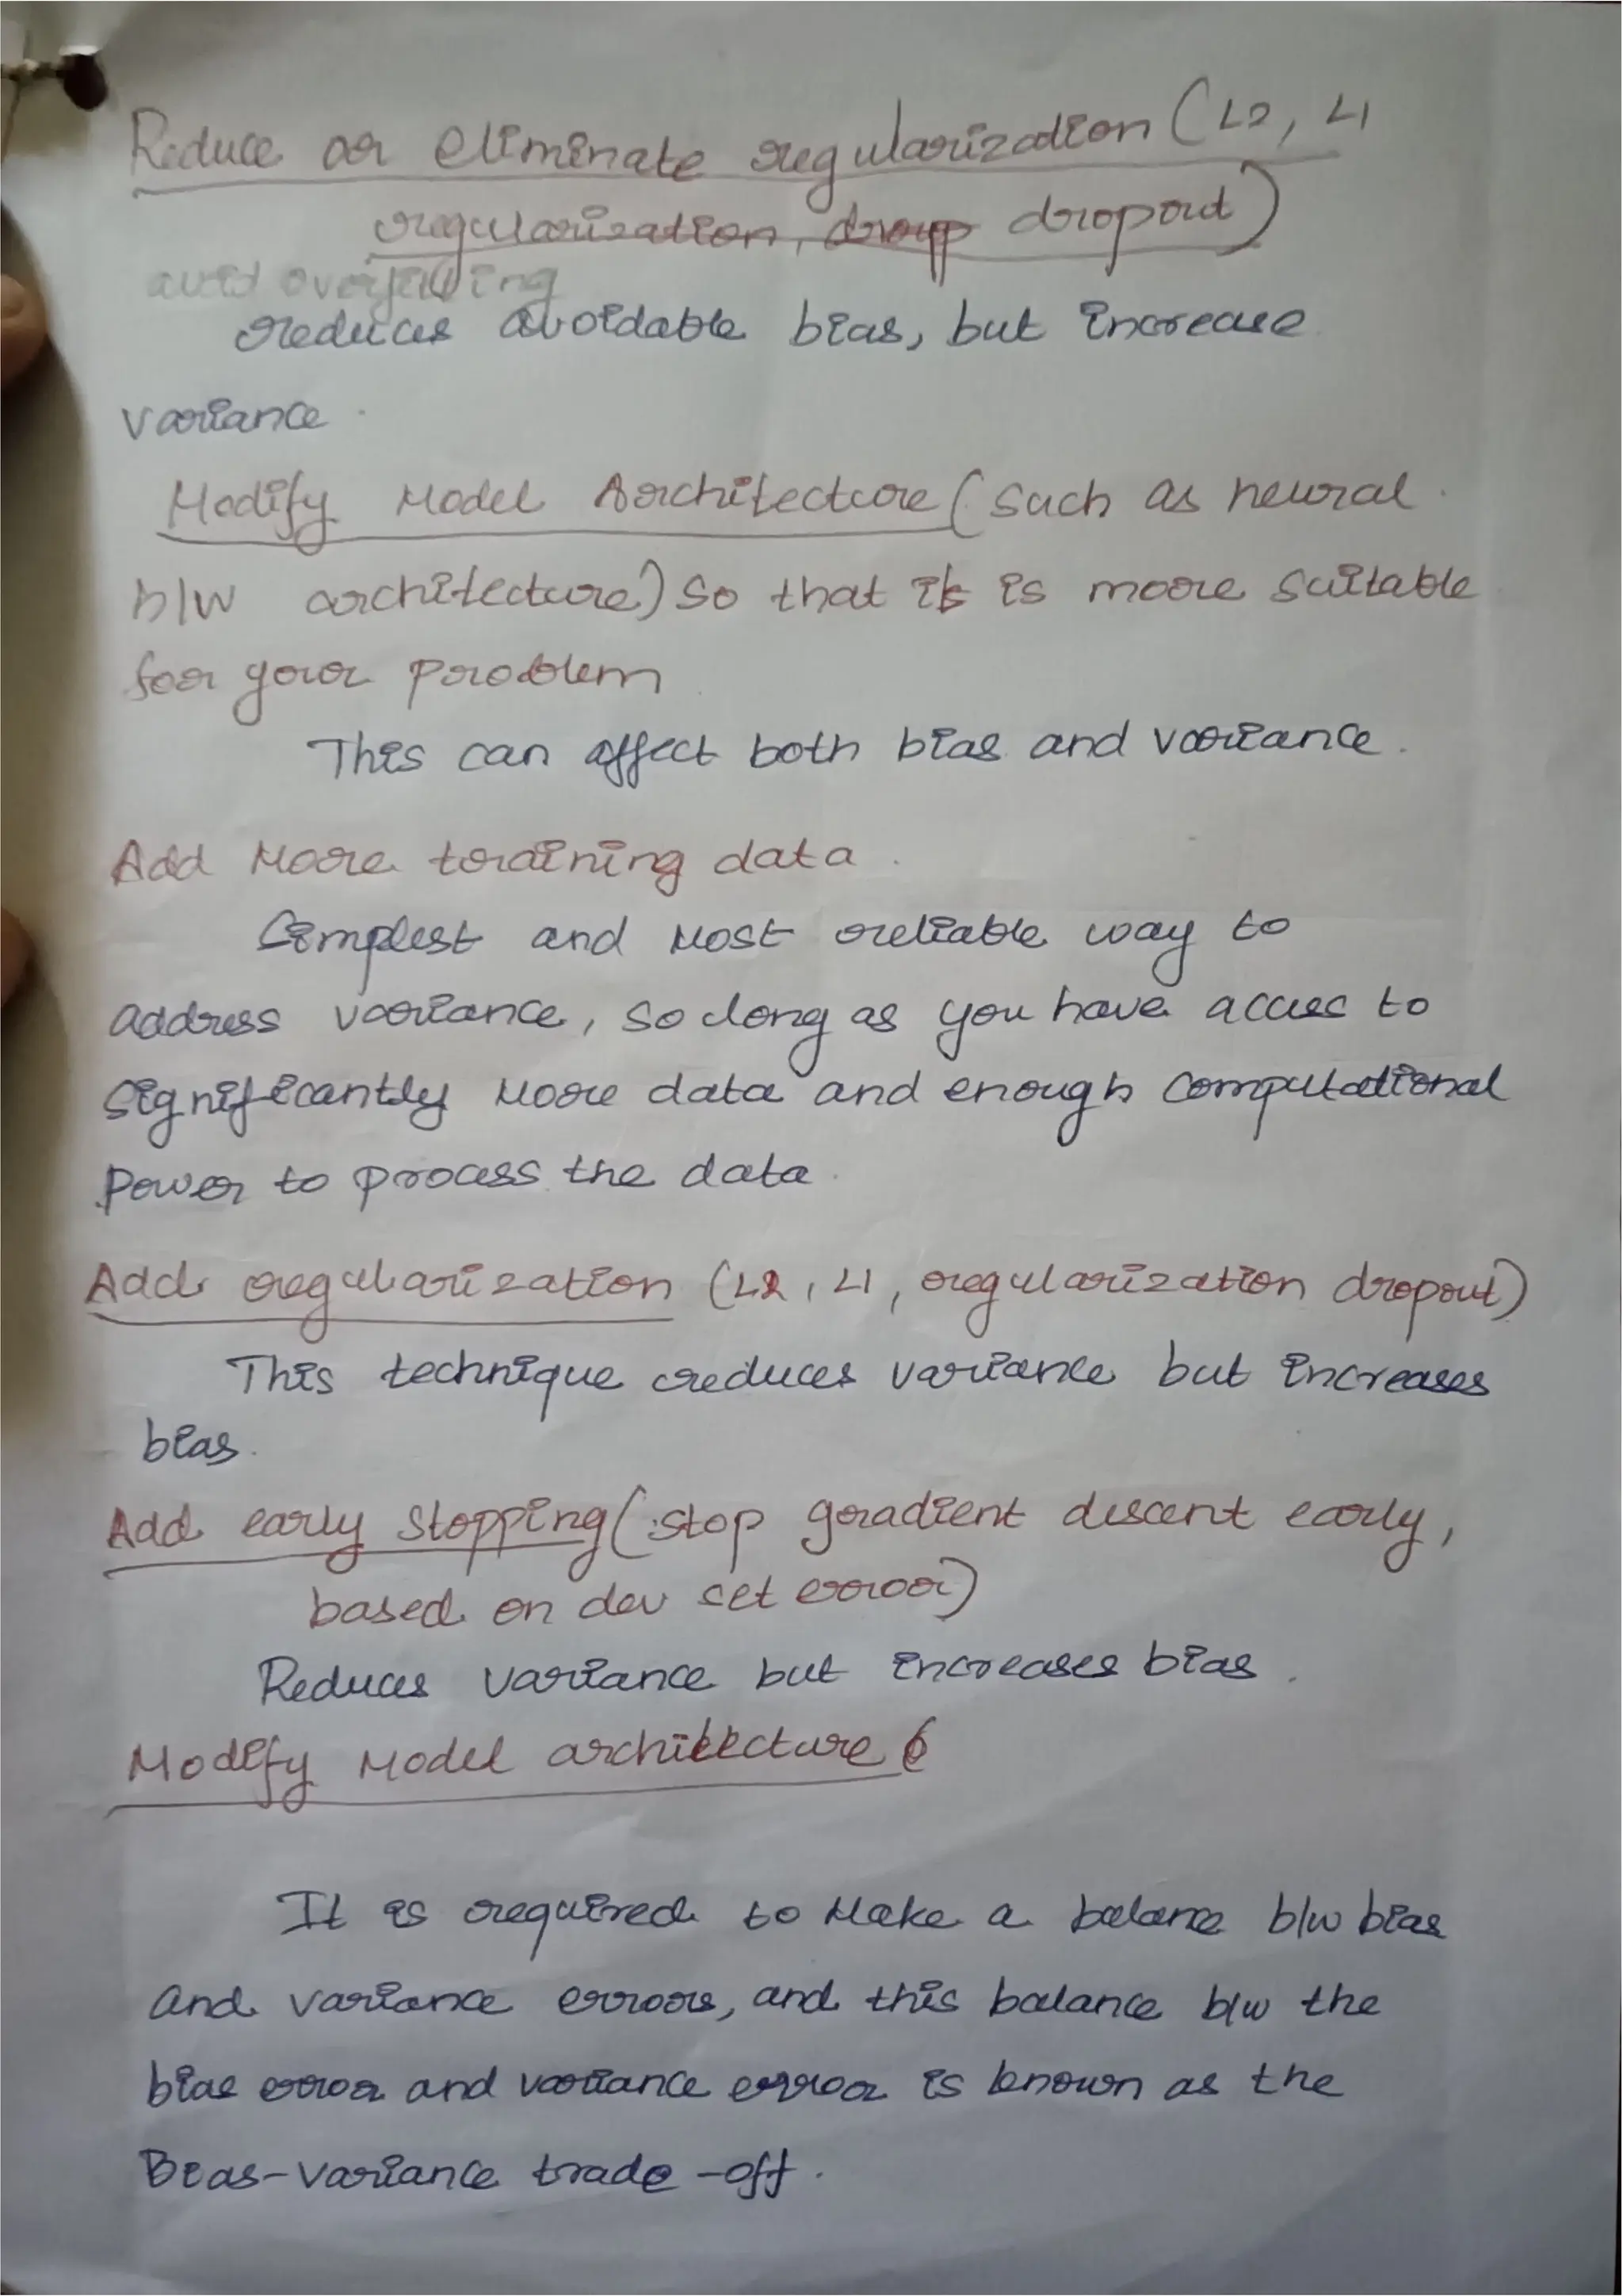 Reduce or eliminate regularization (L2, L1
regularization, droup dropout)
avoid overfitting
reduces avoidable bias, but increase
variance.
Modify Model Architecture (Such as neural
n/w architecture) so that it is more suitable
for your problem
This can affect both bias and variance.
Add More training data.
Simplest and Most reliable way to
address variance, so long as you have access to
significantly More data and enough computational
power to process the data.
Add regularization (L2, L1, regularization dropout)
This technique reduces variance but increases
bias.
Add early stopping (stop gradient descent early,
based on dev set error)
Reduces variance but increases bias.
Modify Model architecture (
It is required to Make a balance b/w bias
and variance errors, and this balance b/w the
bias error and variance error is known as the
Bias-Variance trade-off.